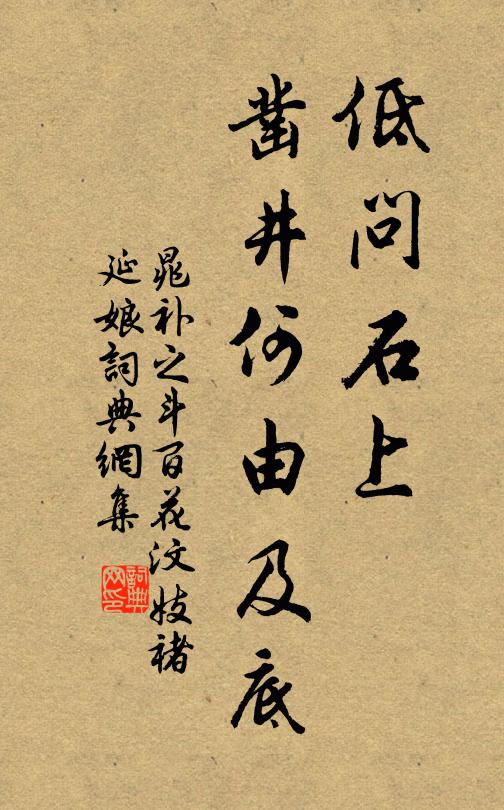 低问石上
凿井何由及底
晁补之斗百花汶妓褚
延娘詞典網集
詞典
网印